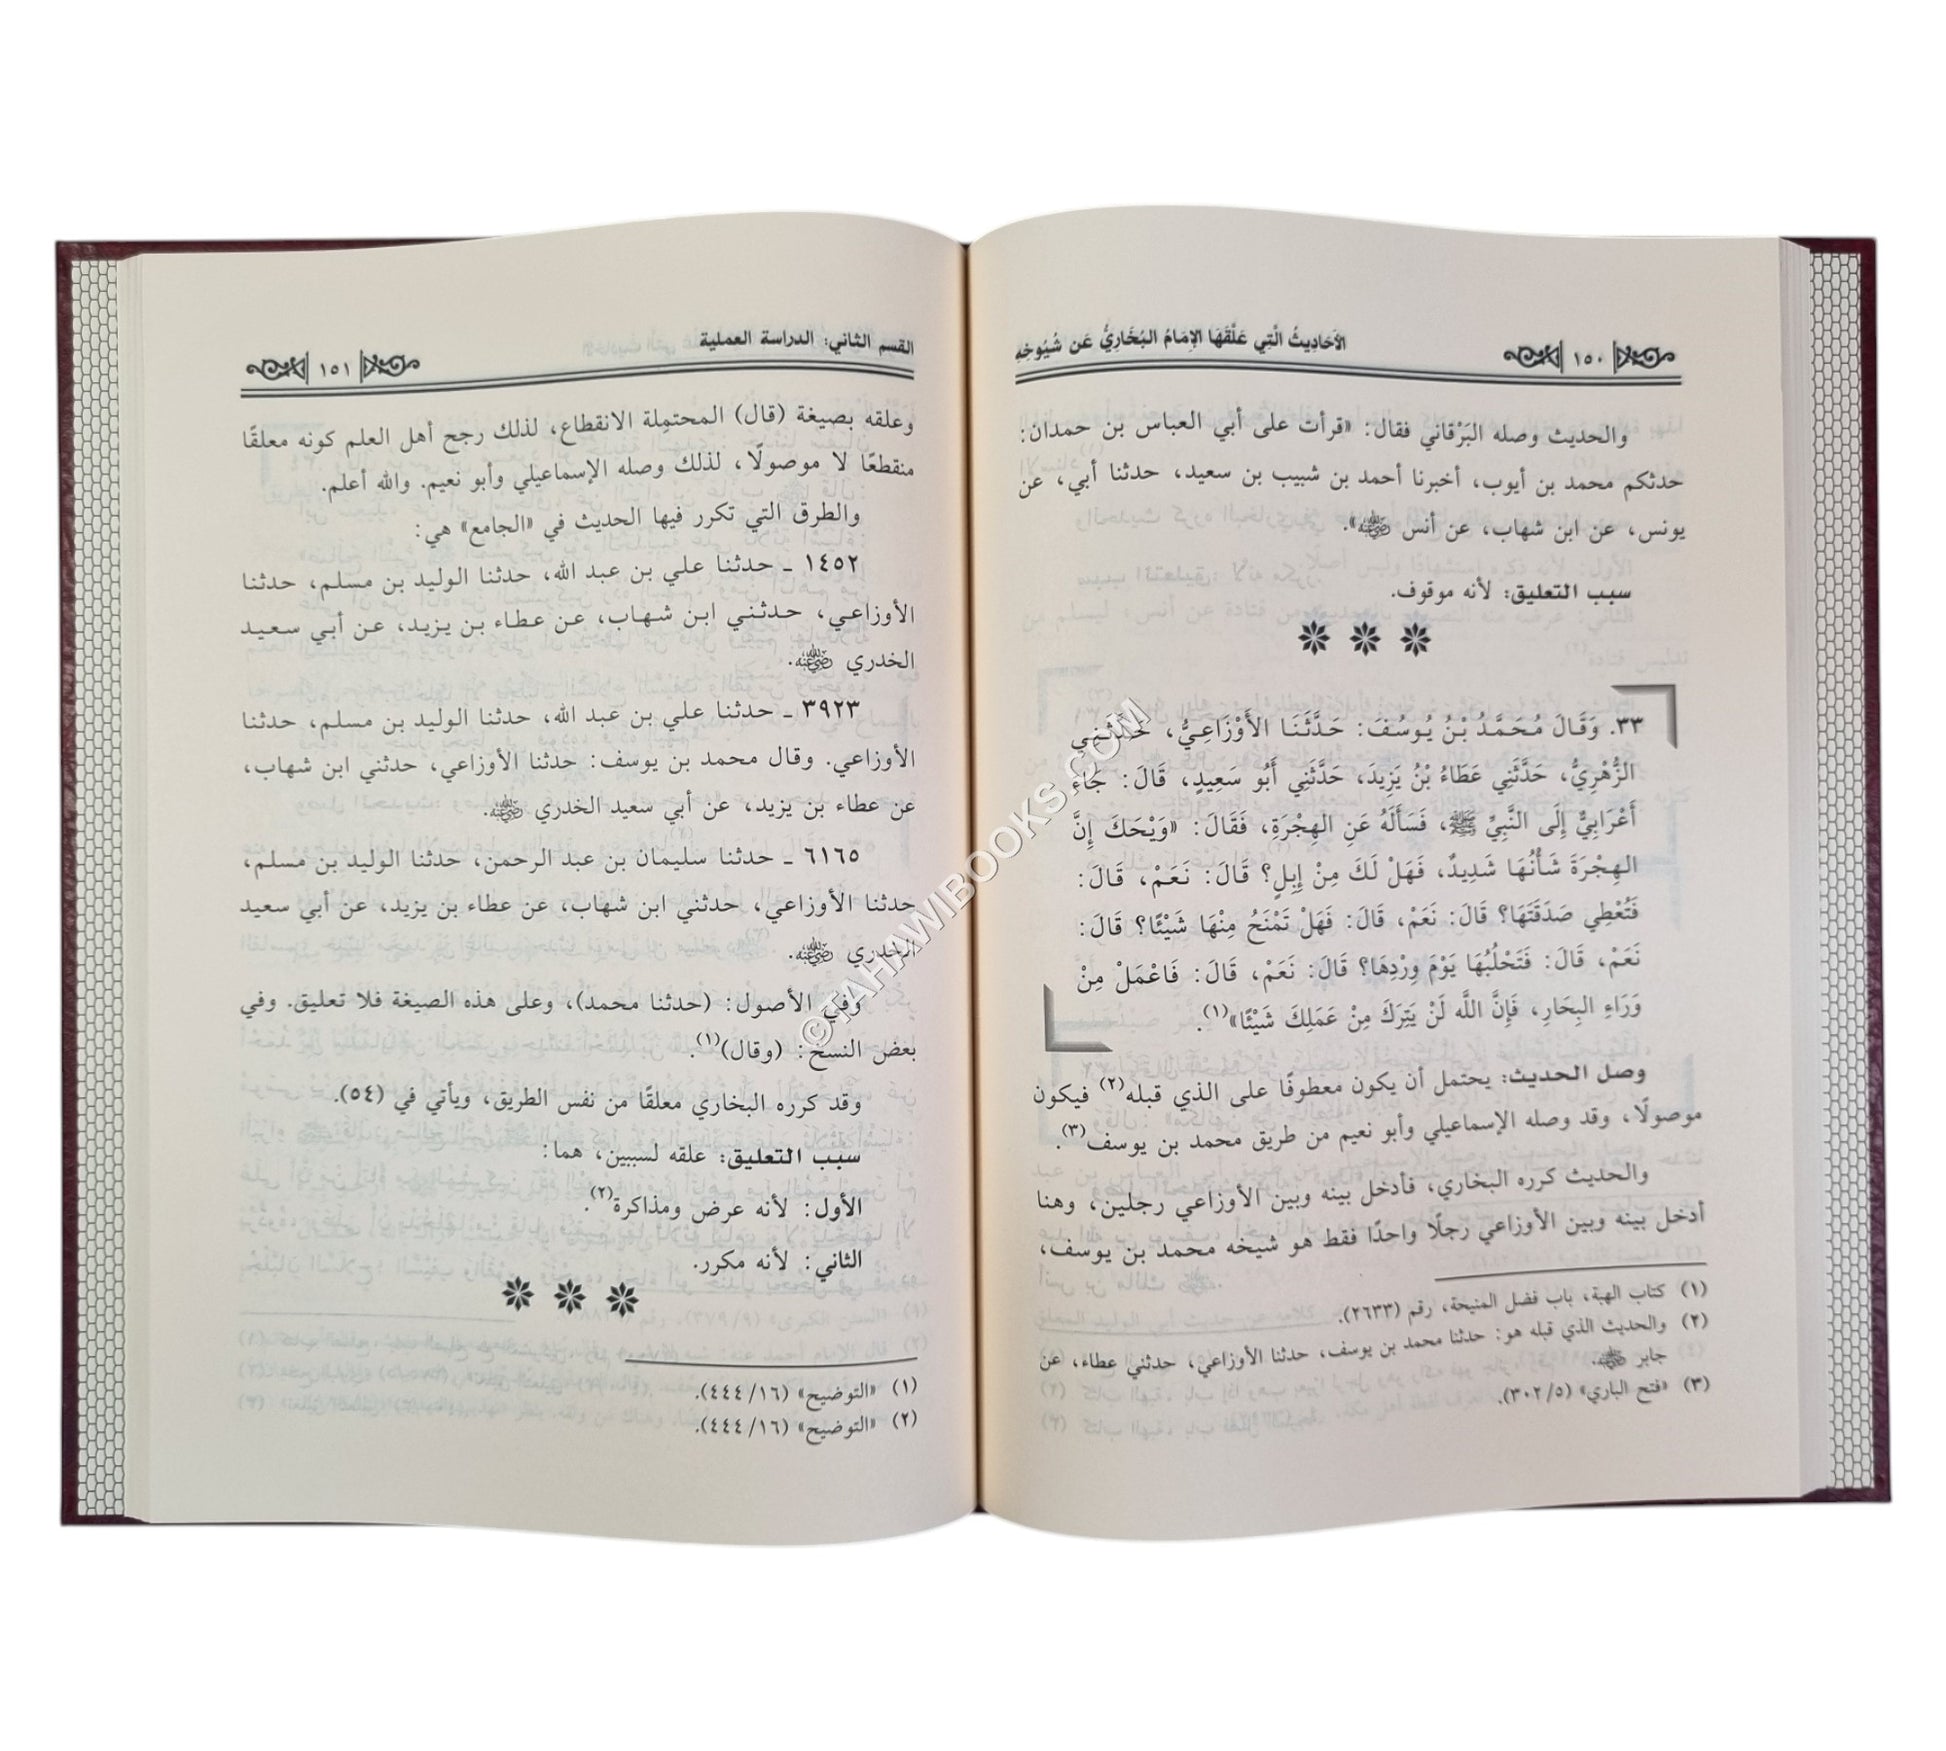 ١٥٠
الأَحَادِيثُ الَّتِي عَلَّقَهَا الإِمَامُ البُخَارِيُّ عَن شُيُوخِهِ
والحديث وصله البَرْقاني فقال: «قرأت على أبي العباس بن حمدان:
حدثكم محمد بن أيوب، أخبرنا أحمد بن شبيب بن سعيد، حدثنا أبي، عن
يونس، عن ابن شهاب، عن أنس ﵁».
سبب التعليق: لأنه موقوف.
٣٣. وَقَالَ مُحَمَّدُ بْنُ يُوسُفَ: حَدَّثَنَا الأَوْزَاعِيُّ، حَدَّثَنِي
الزُّهْرِيُّ، حَدَّثَنِي عَطَاءُ بْنُ يَزِيدَ، حَدَّثَنِي أَبُو سَعِيدٍ، قَالَ: جَاءَ
أَعْرَابِيٌّ إِلَى النَّبِيِّ ﷺ، فَسَأَلَهُ عَنِ الهِجْرَةِ، فَقَالَ: «وَيْحَكَ إِنَّ
الهِجْرَةَ شَأْنُهَا شَدِيدٌ، فَهَلْ لَكَ مِنْ إِبِلٍ؟ قَالَ: نَعَمْ، قَالَ:
فَتُعْطِي صَدَقَتَهَا؟ قَالَ: نَعَمْ، قَالَ: فَهَلْ تَمْنَحُ مِنْهَا شَيْئًا؟ قَالَ:
نَعَمْ، قَالَ: فَتَحْلُبُهَا يَوْمَ وِرْدِهَا؟ قَالَ: نَعَمْ، قَالَ: فَاعْمَلْ مِنْ
وَرَاءِ البِحَارِ، فَإِنَّ اللَّه لَنْ يَتِرَكَ مِنْ عَمَلِكَ شَيْئًا»(١).
وصل الحديث: يحتمل أن يكون معطوفًا على الذي قبله(٢) فيكون
موصولًا، وقد وصله الإسماعيلي وأبو نعيم من طريق محمد بن يوسف(٣).
والحديث كرره البخاري، فأدخل بينه وبين الأوزاعي رجلين، وهنا
أدخل بينه وبين الأوزاعي رجلًا واحدًا فقط هو شيخه محمد بن يوسف،
(١) كتاب الهبة، باب فضل المنيحة، رقم (٢٦٣٣).
(٢) والحديث الذي قبله هو: حدثنا محمد بن يوسف، حدثنا الأوزاعي، حدثني عطاء، عن
جابر ﵁.
(٣) «فتح الباري» (٣٠٢/٥).
القسم الثاني: الدراسة العملية
١٥١
وعلقه بصيغة (قال) المحتمِلة الانقطاع، لذلك رجح أهل العلم كونه معلقًا
منقطعًا لا موصولًا، لذلك وصله الإسماعيلي وأبو نعيم. والله أعلم.
والطرق التي تكرر فيها الحديث في «الجامع» هي:
١٤٥٢ ـ حدثنا علي بن عبد الله، حدثنا الوليد بن مسلم، حدثنا
الأوزاعي، حدثني ابن شهاب، عن عطاء بن يزيد، عن أبي سعيد
الخدري ﵁.
٣٩٢٣ ـ حدثنا علي بن عبد الله، حدثنا الوليد بن مسلم، حدثنا
الأوزاعي. وقال محمد بن يوسف: حدثنا الأوزاعي، حدثني ابن شهاب،
عن عطاء بن يزيد، عن أبي سعيد الخدري ﵁.
٦١٦٥ ـ حدثنا سليمان بن عبد الرحمن، حدثنا الوليد بن مسلم،
حدثنا الأوزاعي، حدثني ابن شهاب، عن عطاء بن يزيد، عن أبي سعيد
الخدري ﵁.
وفي الأصول: (حدثنا محمد)، وعلى هذه الصيغة فلا تعليق. وفي
بعض النسخ: (وقال)(١).
وقد كرره البخاري معلقًا من نفس الطريق، ويأتي في (٥٤).
سبب التعليق: علقه لسببين، هما:
الأول: لأنه عرض ومذاكرة(٢).
الثاني: لأنه مكرر.
(١) «التوضيح» (٤٤٤/١٦).
(٢) «التوضيح» (٤٤٤/١٦).
©TAHAWIBOOKS.COM